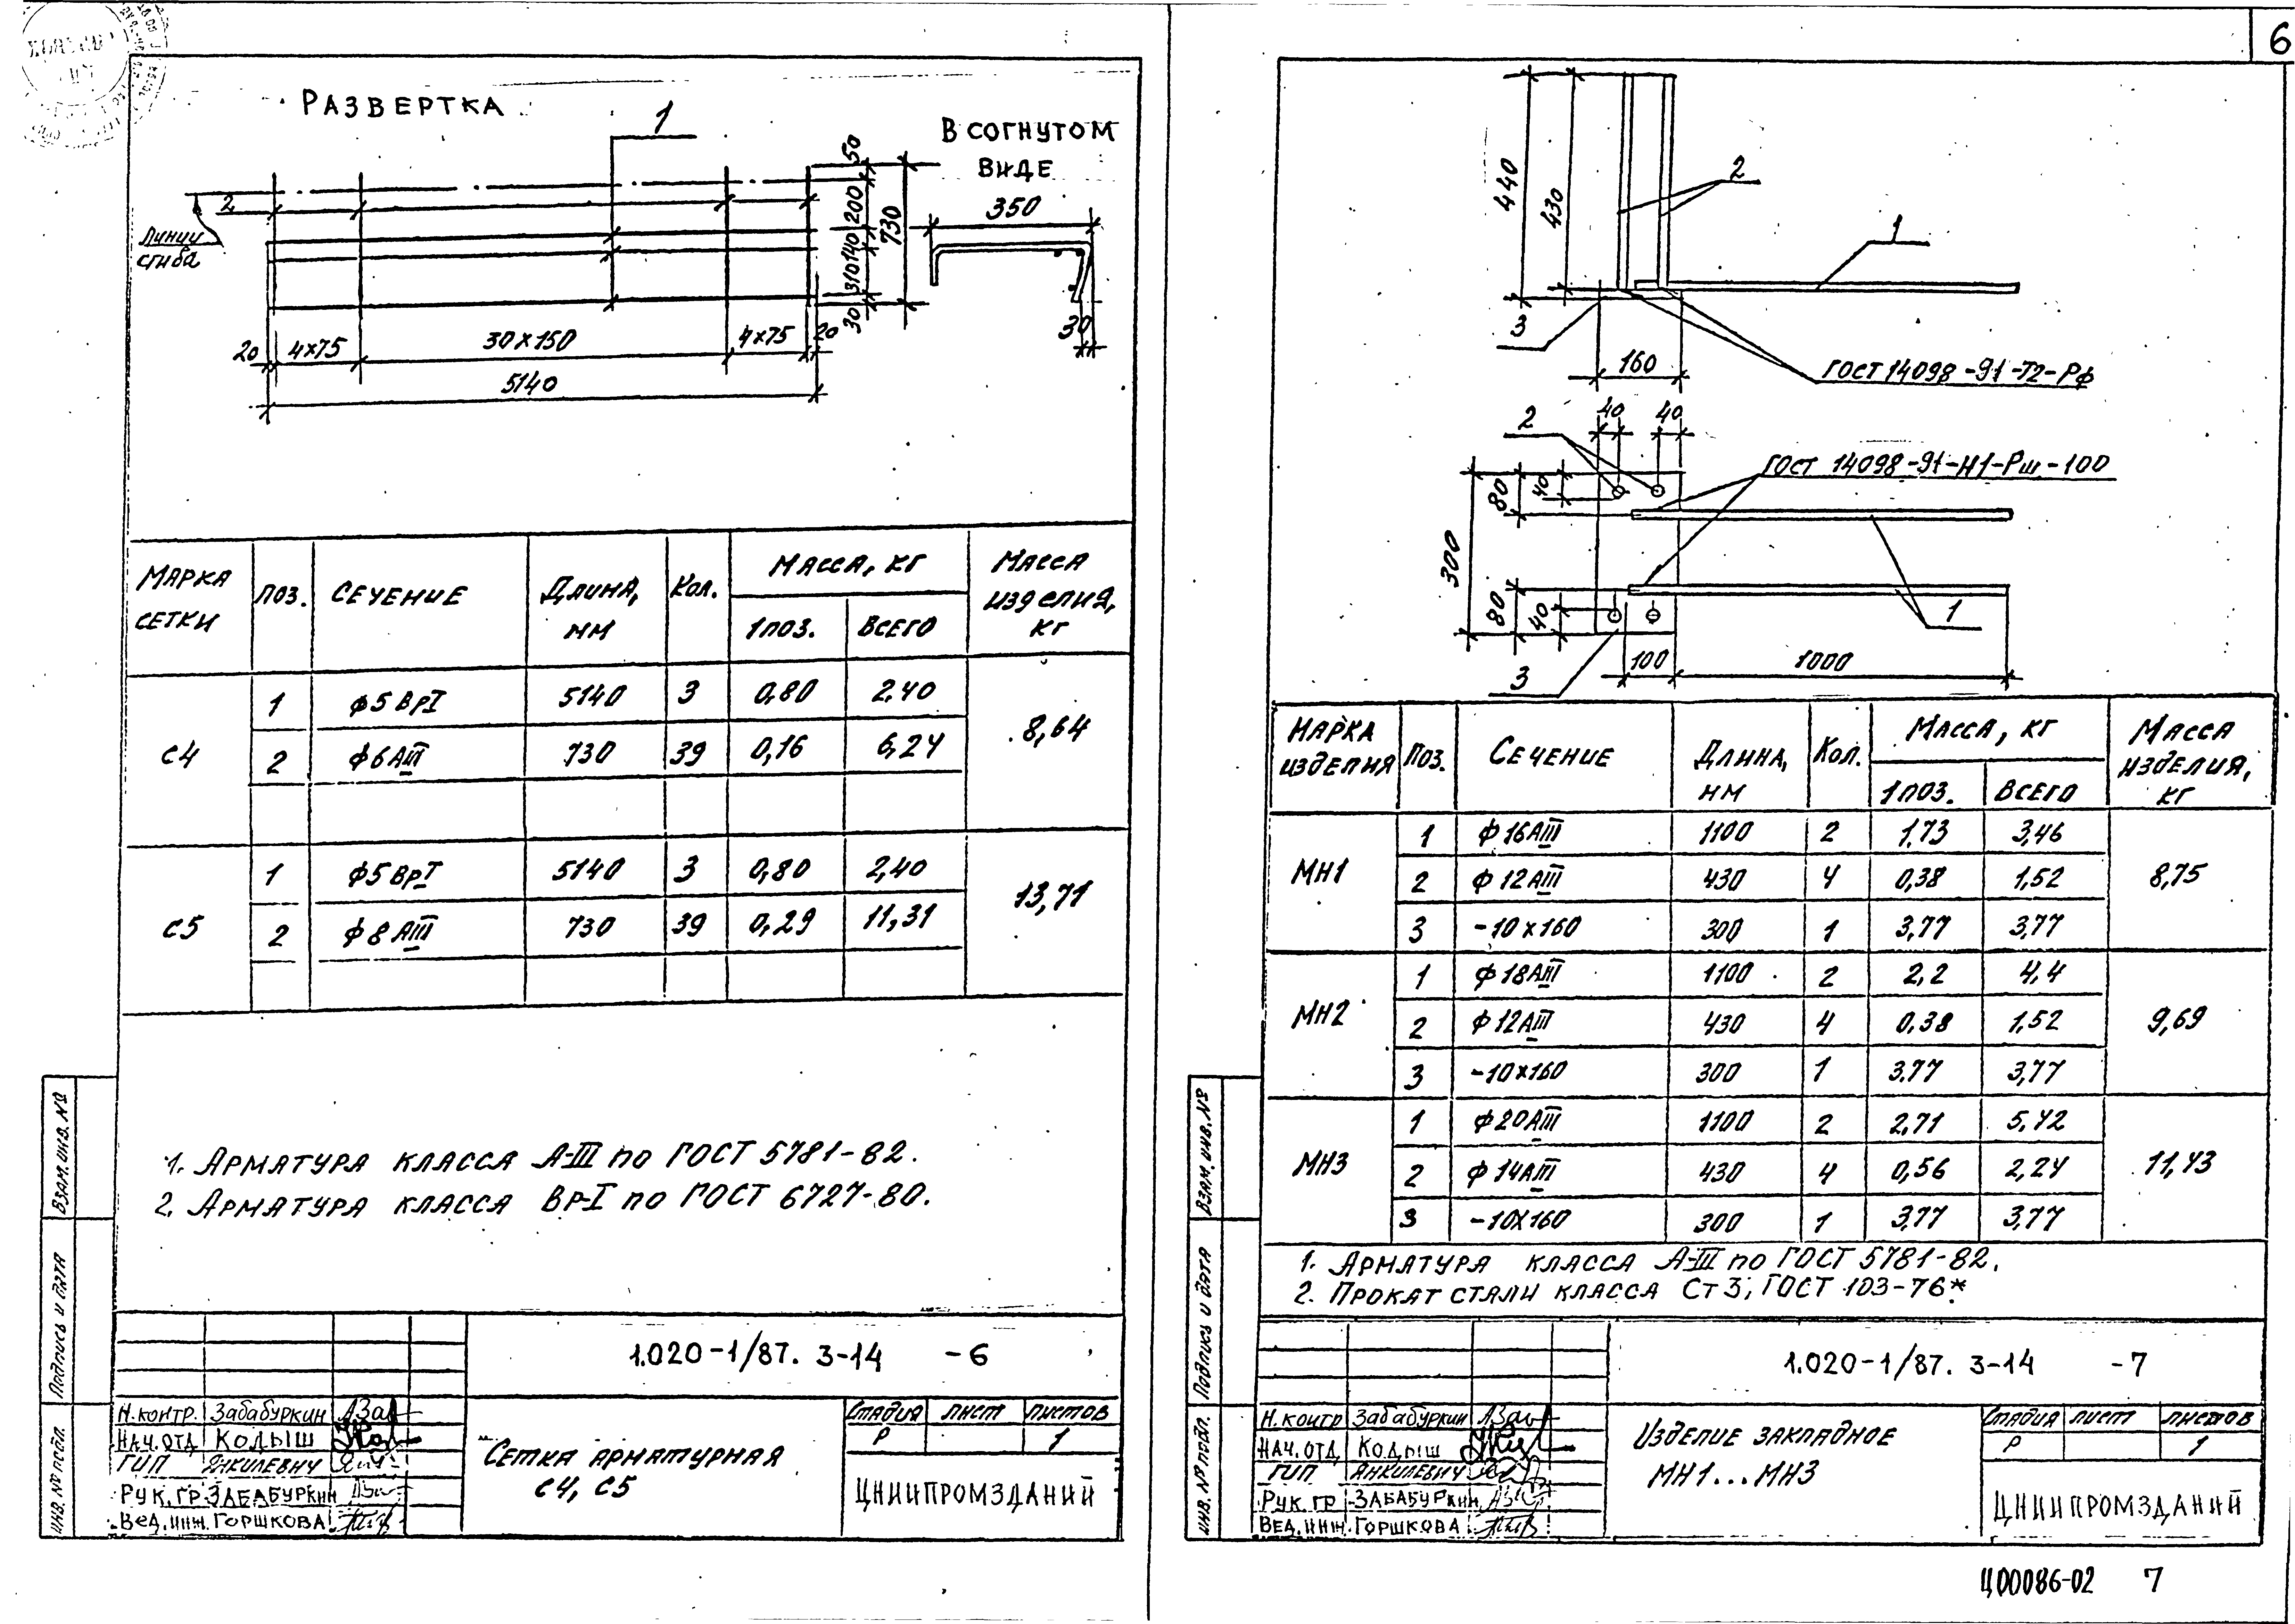 6
РАЗВЕРТКА
1
В СОГНУТОМ
ВИДЕ
2
ЛИНИИ
СГИБА
50
200
140
310
30
730
350
30
20
4×75
30×150
4×75
20
5140
МАРКА СЕТКИ ПОЗ. СЕЧЕНИЕ ДЛИНА, ММ КОЛ. МАССА, КГ МАССА ИЗДЕЛИЯ, КГ
1 ПОЗ. ВСЕГО
С4 1 ф5 ВрI 5140 3 0,80 2,40 8,64
2 ф6 АIII 730 39 0,16 6,24
С5 1 ф5 ВрI 5140 3 0,80 2,40 13,71
2 ф8 АIII 730 39 0,29 11,31
1. АРМАТУРА КЛАССА А-III ПО ГОСТ 5781-82.
2. АРМАТУРА КЛАССА ВР-I ПО ГОСТ 6727-80.
ВЗАМ. ИНВ. №
Подпись и дата
ИНВ. № подл.
1.020-1/87. 3-14 -6
Н.контр. Забабуркин
НАЧ.ОТД КОДЫШ
ГИП ЯНКИЛЕВИЧ
РУК.ГР. ЗАБАБУРКИН
ВЕД.ИНЖ. ГОРШКОВА
СЕТКА АРМАТУРНАЯ
С4, С5
СТАДИЯ ЛИСТ ЛИСТОВ
Р 1
ЦНИИПРОМЗДАНИЙ
440
430
2
1
3
160
ГОСТ 14098-91-Т2-Рф
2
40
40
ГОСТ 14098-91-Н1-Рш-100
300
80
40
80
40
1
3
100
1000
МАРКА ИЗДЕЛИЯ ПОЗ. СЕЧЕНИЕ ДЛИНА, ММ КОЛ. МАССА, КГ МАССА ИЗДЕЛИЯ, КГ
1 ПОЗ. ВСЕГО
МН1 1 ф16АIII 1100 2 1,73 3,46 8,75
2 ф12АIII 430 4 0,38 1,52
3 -10×160 300 1 3,77 3,77
МН2 1 ф18АIII 1100 2 2,2 4,4 9,69
2 ф12АIII 430 4 0,38 1,52
3 -10×160 300 1 3,77 3,77
МН3 1 ф20АIII 1100 2 2,71 5,42 11,43
2 ф14АIII 430 4 0,56 2,24
3 -10×160 300 1 3,77 3,77
1. АРМАТУРА КЛАССА А-III ПО ГОСТ 5781-82.
2. ПРОКАТ СТАЛИ КЛАССА Ст3, ГОСТ 103-76*.
ВЗАМ. ИНВ. №
Подпись и дата
ИНВ. № подл.
1.020-1/87. 3-14 -7
Н.контр Забабуркин
НАЧ.ОТД КОДЫШ
ГИП ЯНКИЛЕВИЧ
РУК.ГР ЗАБАБУРКИН
ВЕД.ИНЖ. ГОРШКОВА
ИЗДЕЛИЕ ЗАКЛАДНОЕ
МН1...МН3
СТАДИЯ ЛИСТ ЛИСТОВ
Р 1
ЦНИИПРОМЗДАНИЙ
Ц00086-02 7